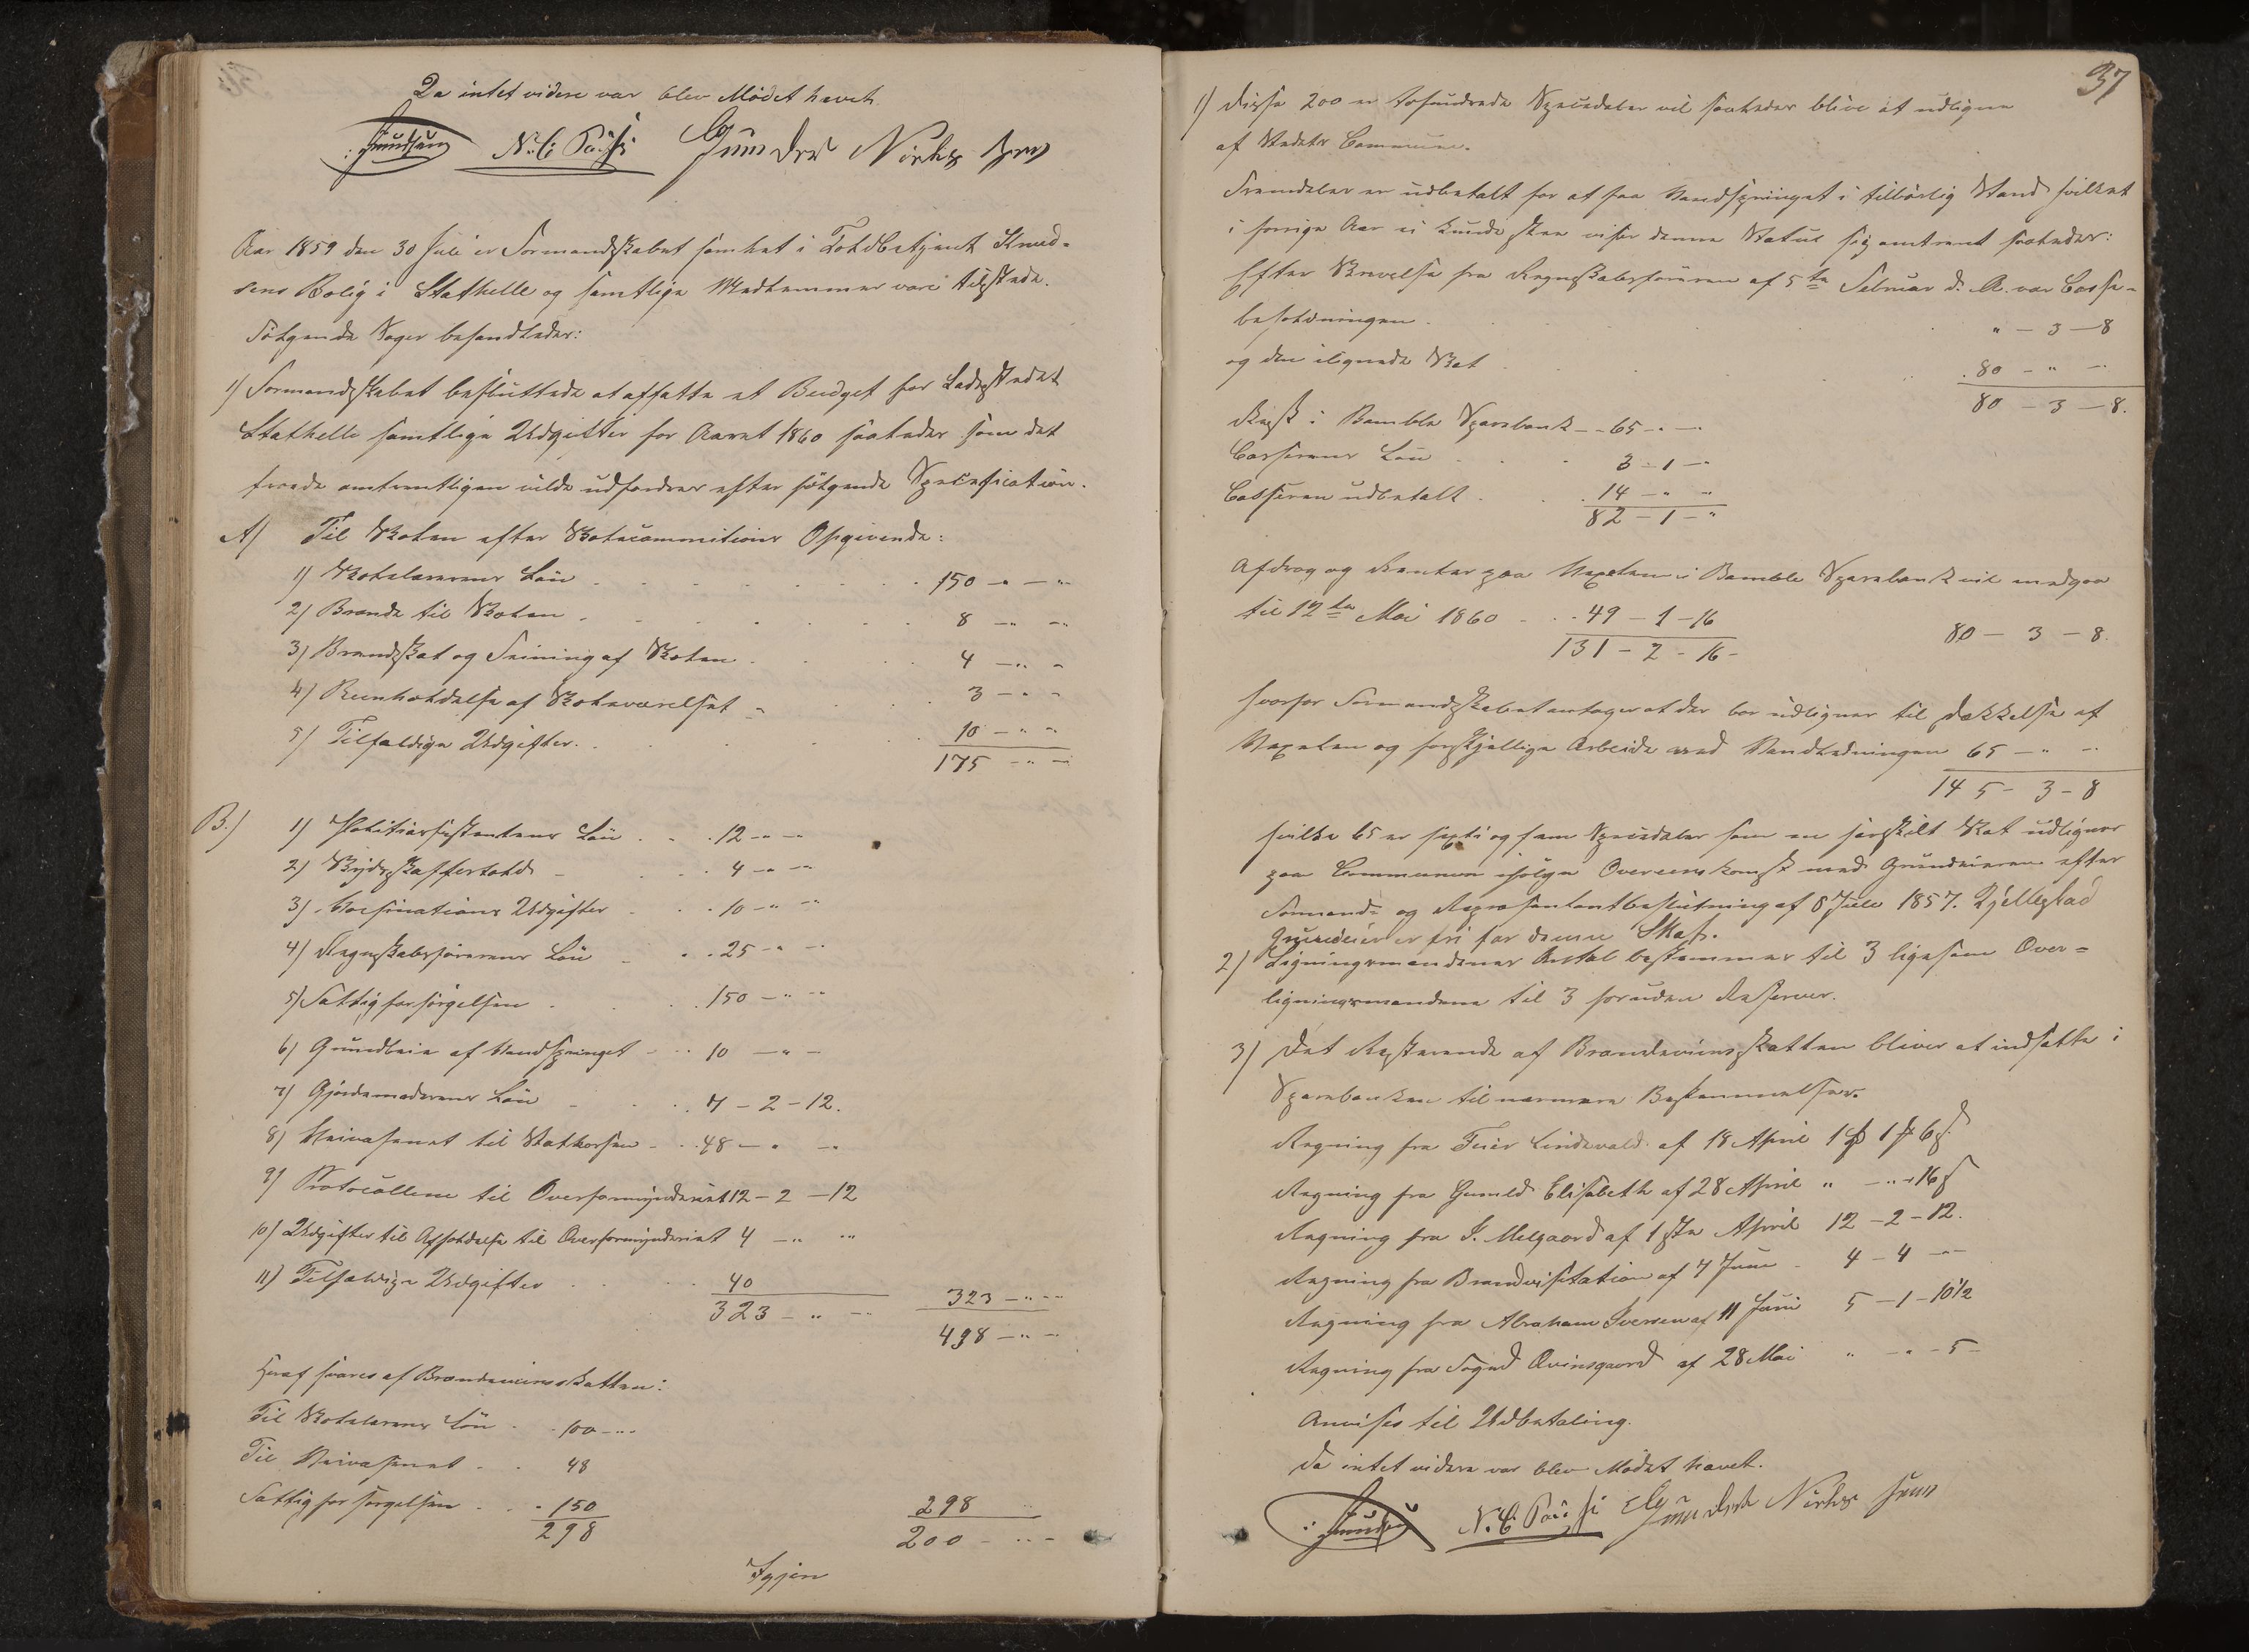 Da intet videre var blev Mödet hævet.
N. C. Gunder Nielssen
Aar 1859 den 30 Juli er Formandskabet samlet i Toldbetjent Knud-
sens Bolig i Stathelle og samtlige Medlemmer vare tilstede.
Fölgende Sager behandledes:
1) Formandskabet besluttede at affatte et Budget for Ladestedet
Stathelle samtlige Udgifter for Aaret 1860 saaledes som det
troede omtrentligen vilde udfordres efter fölgende Specification.
A) Til Skolen efter Skolecommitions Opgivende:
1) Skolelærerens Lön . . . 150 - " - "
2) Brænde til Skolen . . . 8 - " - "
3) Brandskat og Feining af Skolen . . 4 - " - "
4) Reenholdelse af Skoleværelset . . 3 - " - "
5) Tilfældige Udgifter . . . 10 - " - "
175 - " - "
B.) 1) Politiassistentens Lön . . 12 - " - "
2) Skydsskafferhold . . 4 - " - "
3) Vaccinations Udgifter . . 10 - " - "
4) Regnskabsförerens Lön . . 25 - " - "
5) Fattigforsörgelsen . . 150 - " - "
6) Grundleie af Vandspringet . . 10 - " -
7) Gjordemoderens Lön . . 7 - 2 - 12.
8) Veivæsenet til . . 48 - " - "
9) Protocollerne til Overformynderiet 12 - 2 - 12
10) Udgifter til Afholdelse til Overformynderiet 4 - " - "
11) Tilfældige Udgifter . . 40
323 - " - " 323 - " - "
498 - " - "
Heraf svares af Brændeviinsskatten:
Til Skolelærerens Lön . . 100 - " -
Til Veivæsenet . . 48
Fattigforsörgelsen . . 150
298 298
200 - " -
Igjen
37
1) Disse 200 er tohundrede Speciedaler vil saaledes blive at udligne
af Stedets Commune.
Fremdeles er udbetalt for at faa Vandspringet i tilbörlig Stand hvilket
i forrige Aar ei kunde skee viser denne Status sig omtrent saaledes:
Efter Skrivelse fra Regnskabsföreren af 5te Februar d. A. var Casse-
beholdningen . . . " - 3 - 8
og den ilignede Skat . . . 80 - " -
80 - 3 - 8.
Resk. i Bamble Sparebank - 65 - " -
Casserens Lön . . 3 - 1 - "
Casseren udbetalt . . 14 - " - "
82 - 1 - "
Afdrag og Renter paa Vexelen i Bamble Sparebank vil medgaa
til 12te Mai 1860 . . 49 - 1 - 16
131 - 2 - 16 - 80 - 3 - 8.
hvorfor Formandskabet antager at der bör udlignes til Dækkelse af
Vexelen og forskjellige Arbeide ved Vandledningen 65 - " -
145 - 3 - 8
hvilke 65 er sexti og fem Speciedaler som en særskilt Skat udlignes
paa Communen ifölge Overeenskomst med Grundeieren efter
Formand- og Repræsentantbeslutning af 8 Juli 1857. Kjellestad
Grundeier er fri for denne Skat.
2) Ligningsmændenes Antal bestemmes til 3 ligesom Over-
ligningsmændene til 3 foruden Reserver.
3) Det Resterende af Brændeviinsskatten bliver at indsætte i
Sparebanken til nærmere Bestemmelser.
Regning fra Feier Lindevald af 18 April 1 1 6
Regning fra Gunild Elisabeth af 28 April " - " - 16
Regning fra G. Melgaard af 1ste April 12 - 2 - 12.
Regning fra Brandvisitation af 7 Juni 4 - 4 - "
Regning fra Abraham Iversen af 11 Juni 5 - 1 - 10 1/2
Regning fra Foged Qvinsgaard af 28 Mai " - " - 5 -
Anvises til Udbetaling.
Da intet videre var blev Mödet hævet.
N. C. Gunder Nielssen